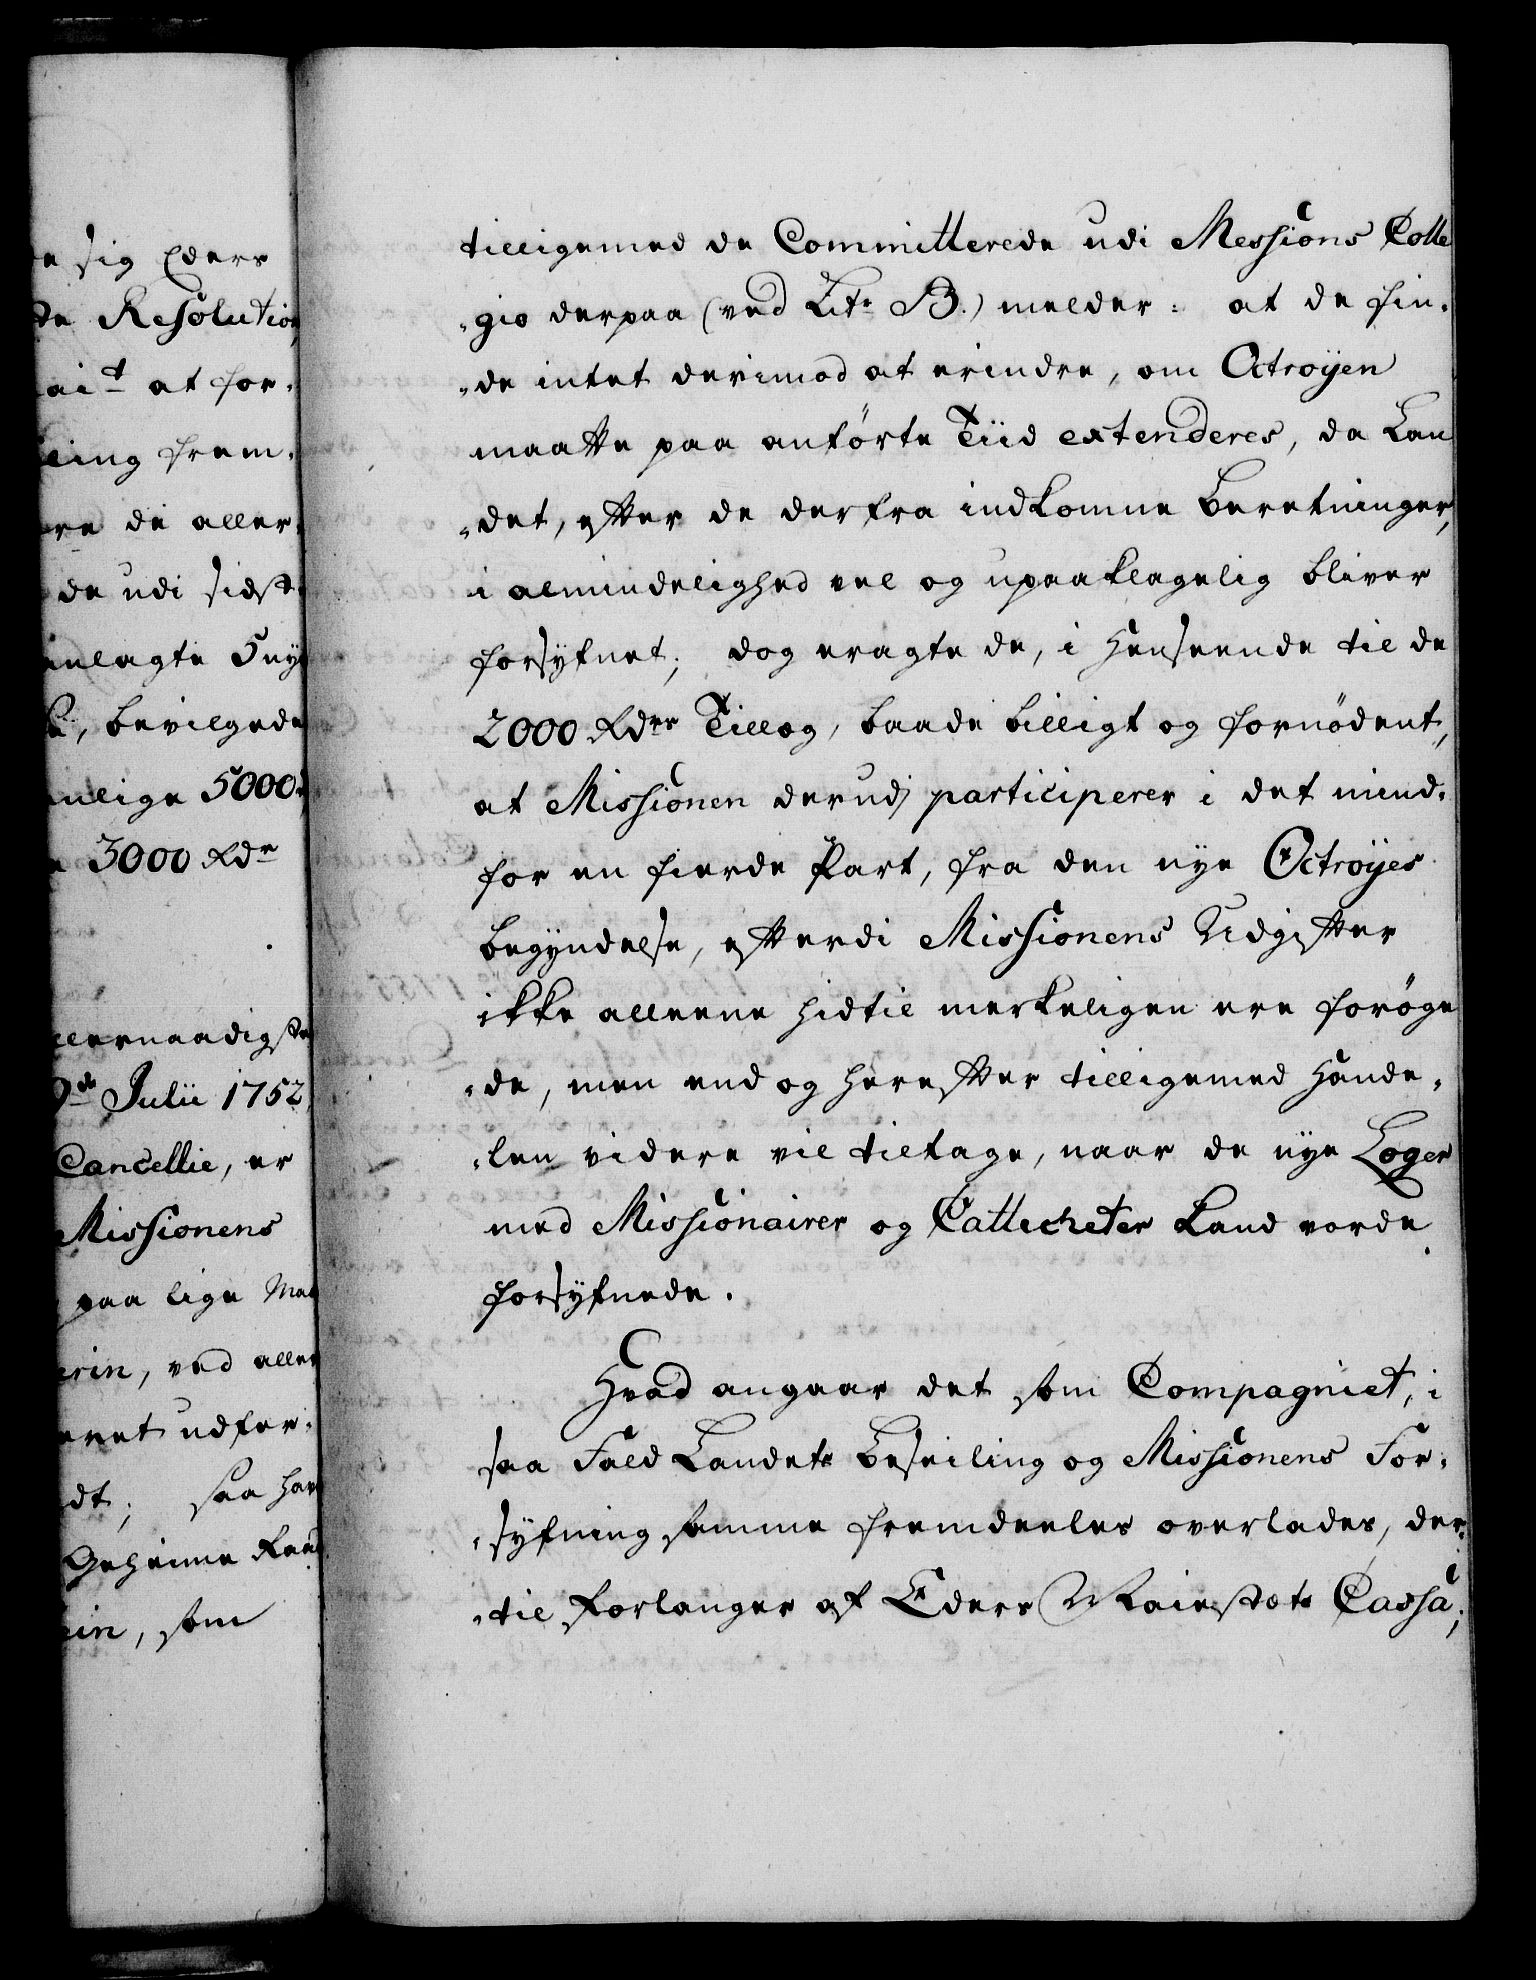 e sig Eders
de Resolution,
ai⁠t at for⸗
ling frem⸗
re de aller⸗
de udi sidst⸗
anlagte 5 nye
bevilgede
nlige 5000
3000 Rdr
allernaadigste
9de Julii 1752,
Cancellie, er
Missionens
paa lige Maa
erin, ved aller
eret udfør⸗
dt; saa har
Geheime Raad
ein, som
tilligemed de Committerede udi Messions Colle
⸗gio derpaa (ved Litr B.) melder: at de fin⸗
⸗de intet derimod at erindre, om Octroyen
maatte paa anførte Tiid extenderes, da Lan
⸗det, efter de derfra indkomne Beretninger,
i almindelighed vel og upaaklagelig bliver
forsynet; dog eragte de, i Henseende til de
2000 Rdrs Tillæg, baade billigt og fornødent,
at Missionen derudj participerer i det mind⸗
for en fierde Part, fra den nye Octroyes
begyndelse, efterdi Missionens Udgifter
ikke alleene hidtil merkeligen ere forøge
⸗de, men end og herefter tilligemed Hande⸗
⸗len videre vil tiltage, naar de nye Loger
med Missionairer og Cattecheter kand vorde
forsynede.
Hvad angaar det som Compagniet, i
saa Fald Landets Beseiling og Missionens For⸗
⸗syning samme fremdeeles overlades, der⸗
⸗til forlanger af Eders Maiestets Cassa;